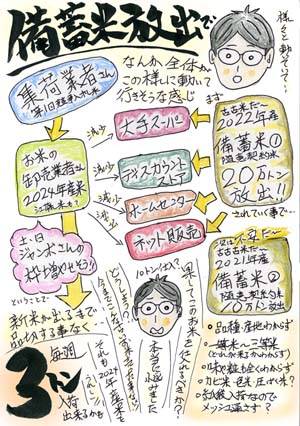 備蓄米放出で
様々と動いていて…
なんか全体が
この様に動いて
行きそうな感じ
ます
集荷業者さん
お米の
卸売業者さん
2024年産米
減少
大手スーパー
減少
ディスカウント
ストア
減少
ホームセンター
減少
ネット販売
古古米だ〜
2022年産
備蓄米①
随意契約米
20万トン
放出!!
されていく事で…
古古古米だ〜
2021年産
備蓄米②
随意契約米
10万トン
放出
土・日
ジャンボさんの
枠増やせそう!!
ということで…
新米が出るまで
品切する事なく…
毎週
3トン
入荷
出来るかも
10トンは入る?
果してこのお米を仕入れるべきか?
本当に悩みました
どうしよう?
それも2024年産米を
・品種・産地わからず
・一等米〜三等米
(どれが来るかわからず)
・味の程も全くわからず
・カビ米・老米・圧ぱく米?
・等級米なので
メッシュ通さず?